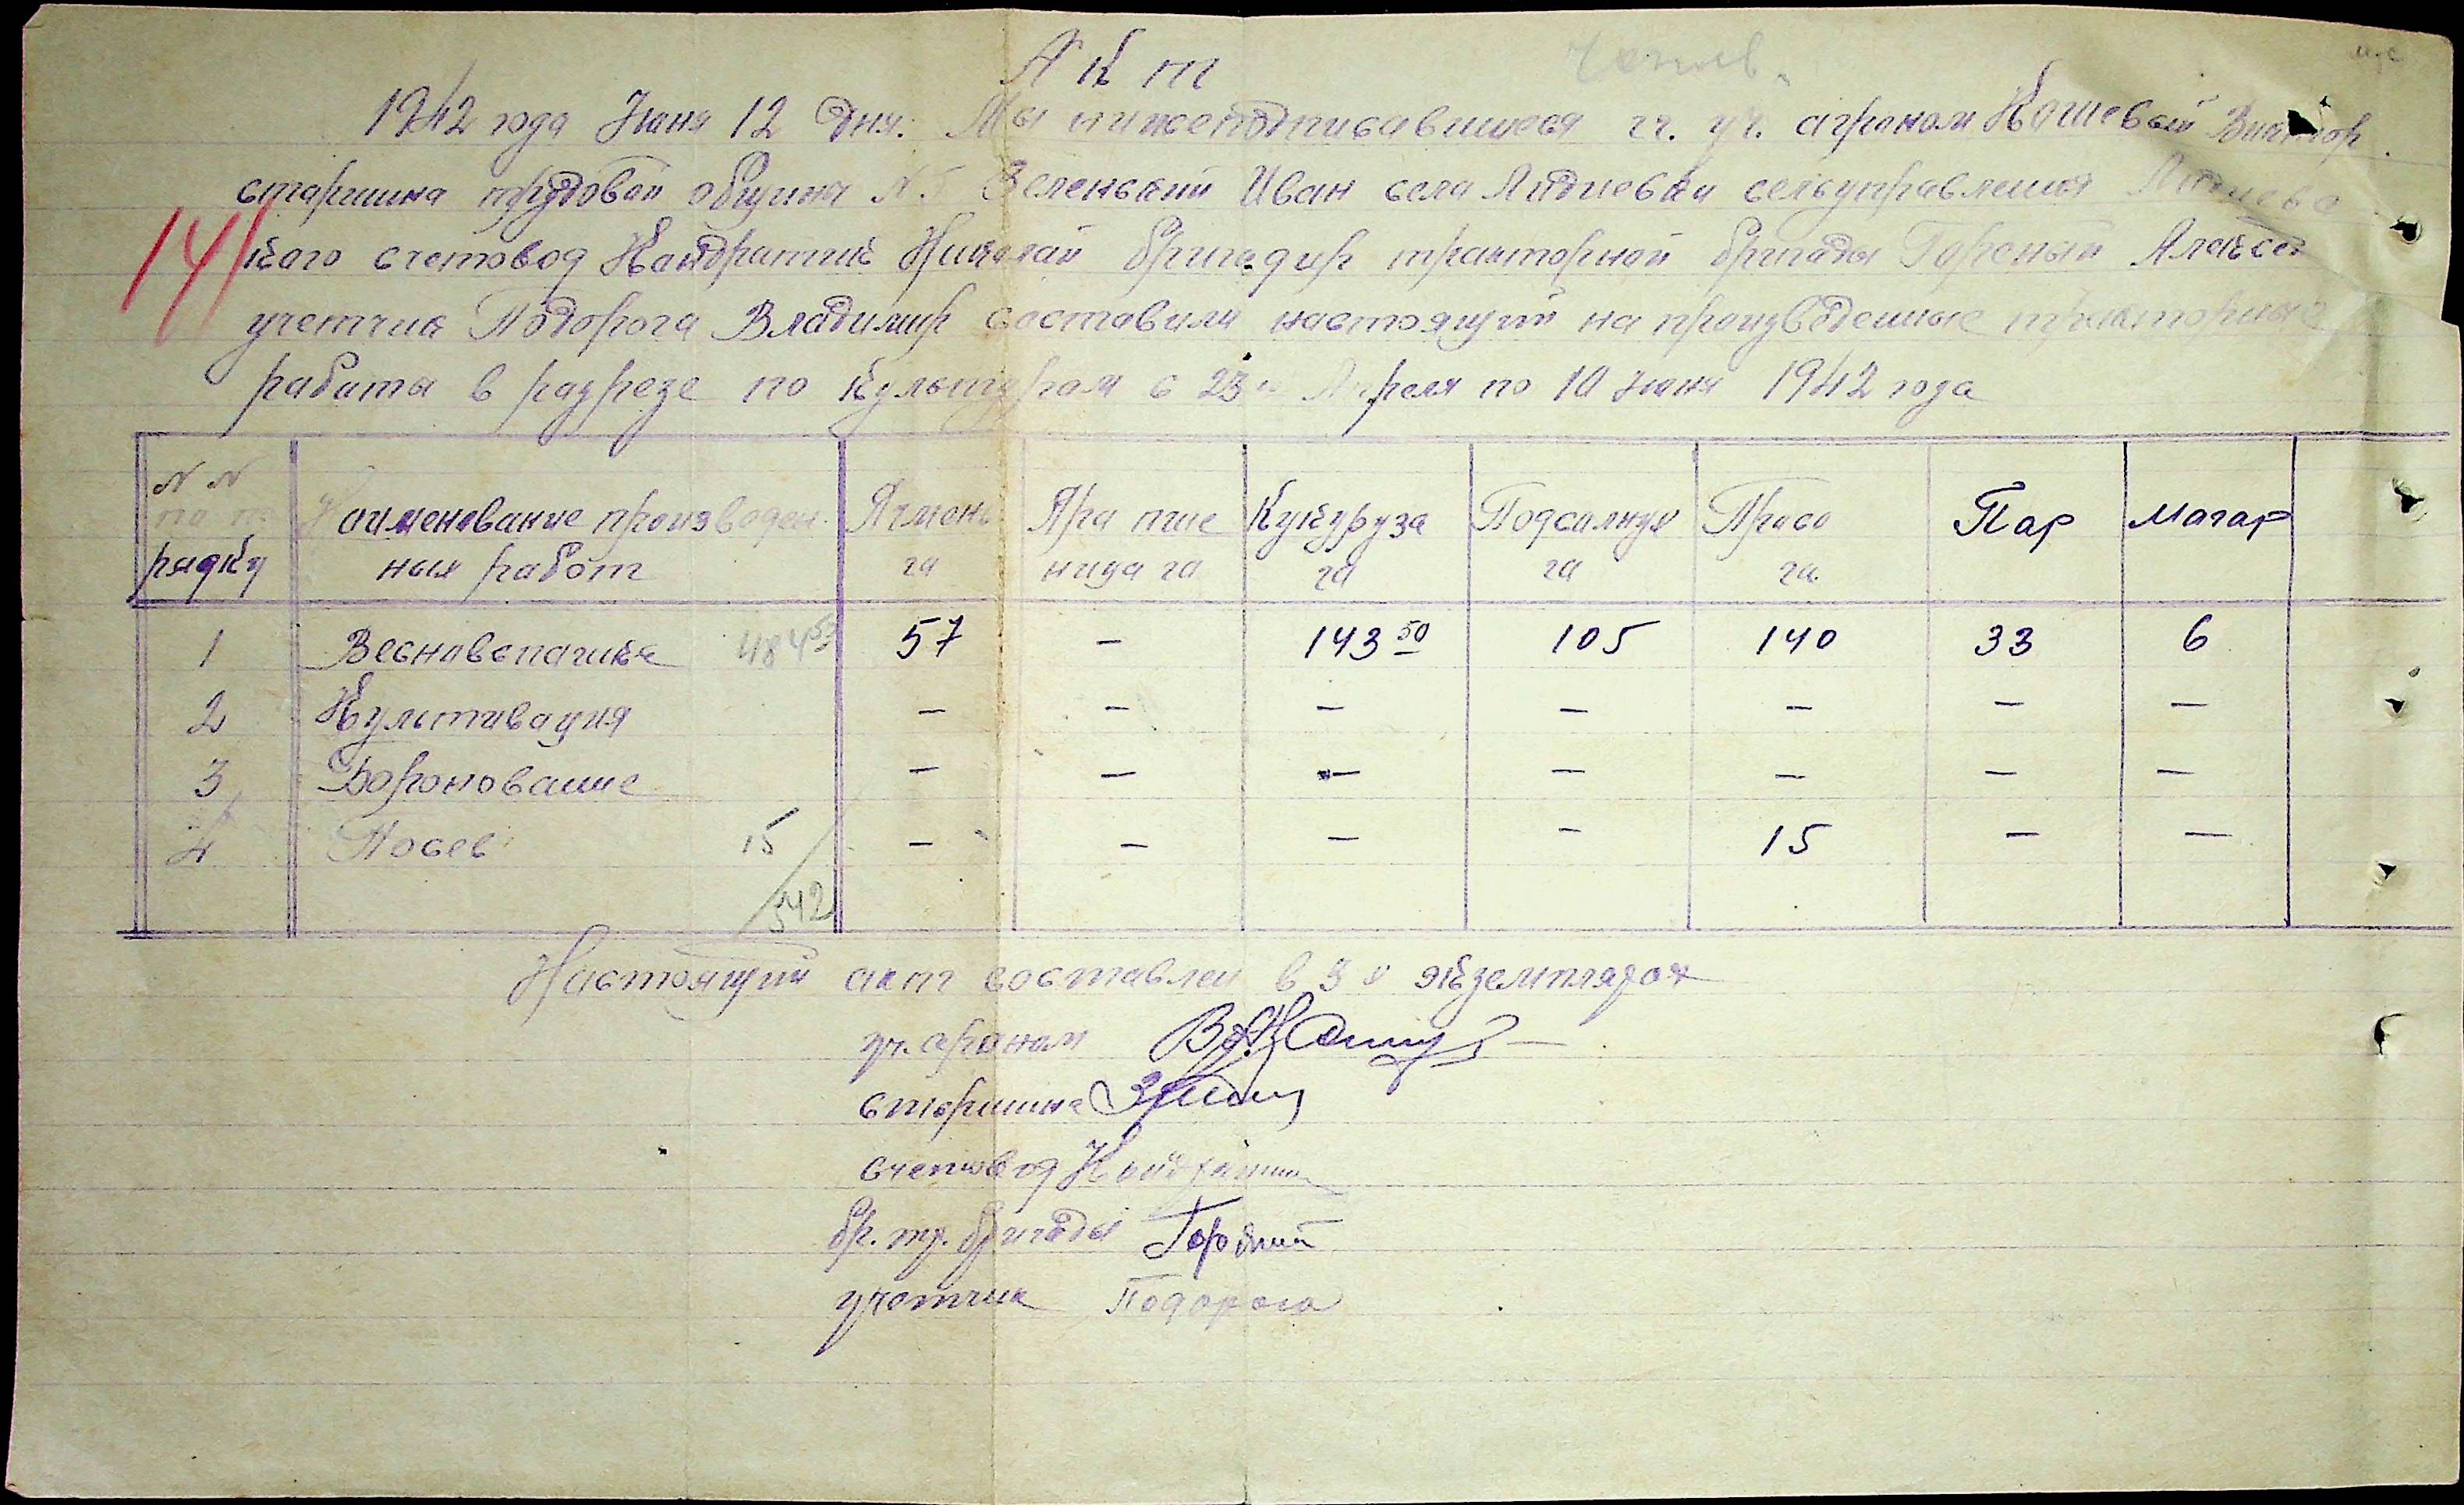 Акт
1942 года Июня 12 дня. Мы нижеподписавшиеся гг. уч. агроном Кошевой Виктор
старшина трудовой общины №5 Зеленький Иван села Лидиевки сельуправления Лидиевс
кого счетовод Кондратик Николай бригадир тракторной бригады Горёный Алексей
учетчик Подорога Владимир составили настоящий на произведенные тракторные
работы в разрезе по культурам с 23 Апреля по 10 июня 1942 года
141
N N по п рядку Наименование произведен ных работ Ячмень га Яра пше ница га Кукуруза га Подсолнух га Просо га Пар Магар
1 Весновспашка 484 50 57 – 143 50 105 140 33 6
2 Культивация – – – – – – –
3 Боронование – – – – – – –
4 Посев 15 – – – – 15 – –
542
Настоящий акт составлен в 3 х экземплярах
уч. агроном
старшина
счетовод
бр. тр. бригады
учетчик Подорога